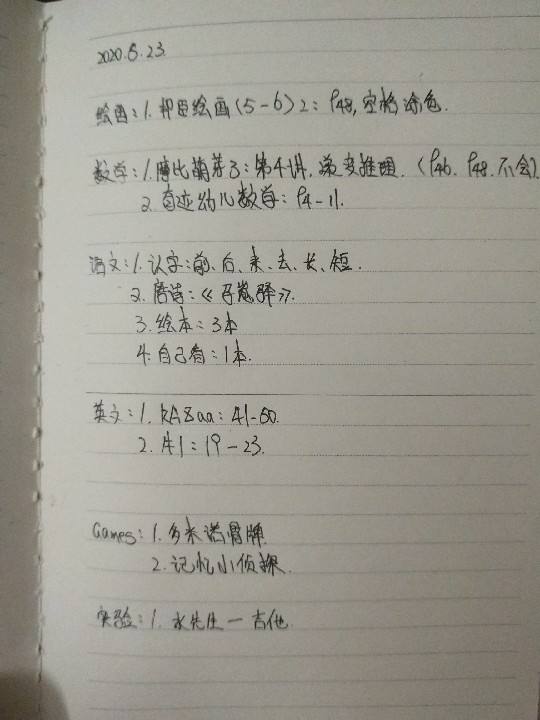 2020.6.23.
绘画:1.押田绘画(5-6)2:P48,空格涂色.
数学:1.摩比萌芽3:第4讲,递变推理.(P46. P48.不会).
2.奇迹幼儿数学:P4-11.
语文:1.认字:前、后、来、去、长、短.
2.唐诗:《》.
3.绘本:3本
4.自己看:1本.
英文:1.RAZaa:41-60.
2.牛1:19-23.
Games:1.多米诺骨牌.
2.记忆小侦探.
实验:1.水先生—吉他.